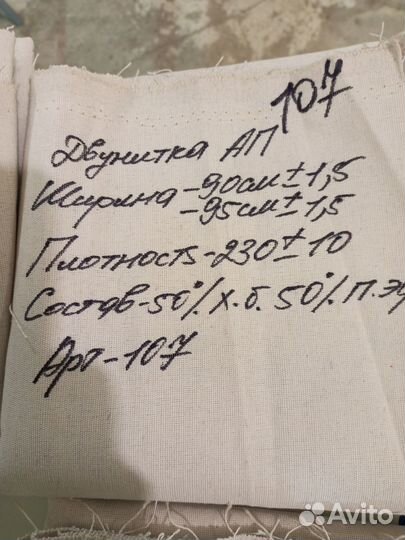 107
Двунитка АП
Ширина - 90см ± 1,5
- 95см ± 1,5
Плотность - 230 ± 10
Состав - 50% х.б. 50% п.э
Арт - 107
Avito